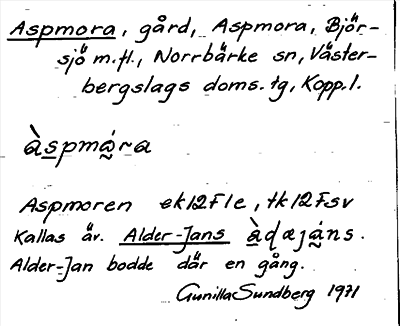 Aspmora, gård, Aspmora, Björ-
sjö m.fl., Norrbärke sn, Väster-
bergslags doms. tg, Kopp. l.
àspmá̰ra
Aspmoren ek12F1e, tk12Fsv
Kallas äv. Alder-Jans àdæjá̰ns.
Alder-Jan bodde där en gång.
Gunilla Sundberg 1971